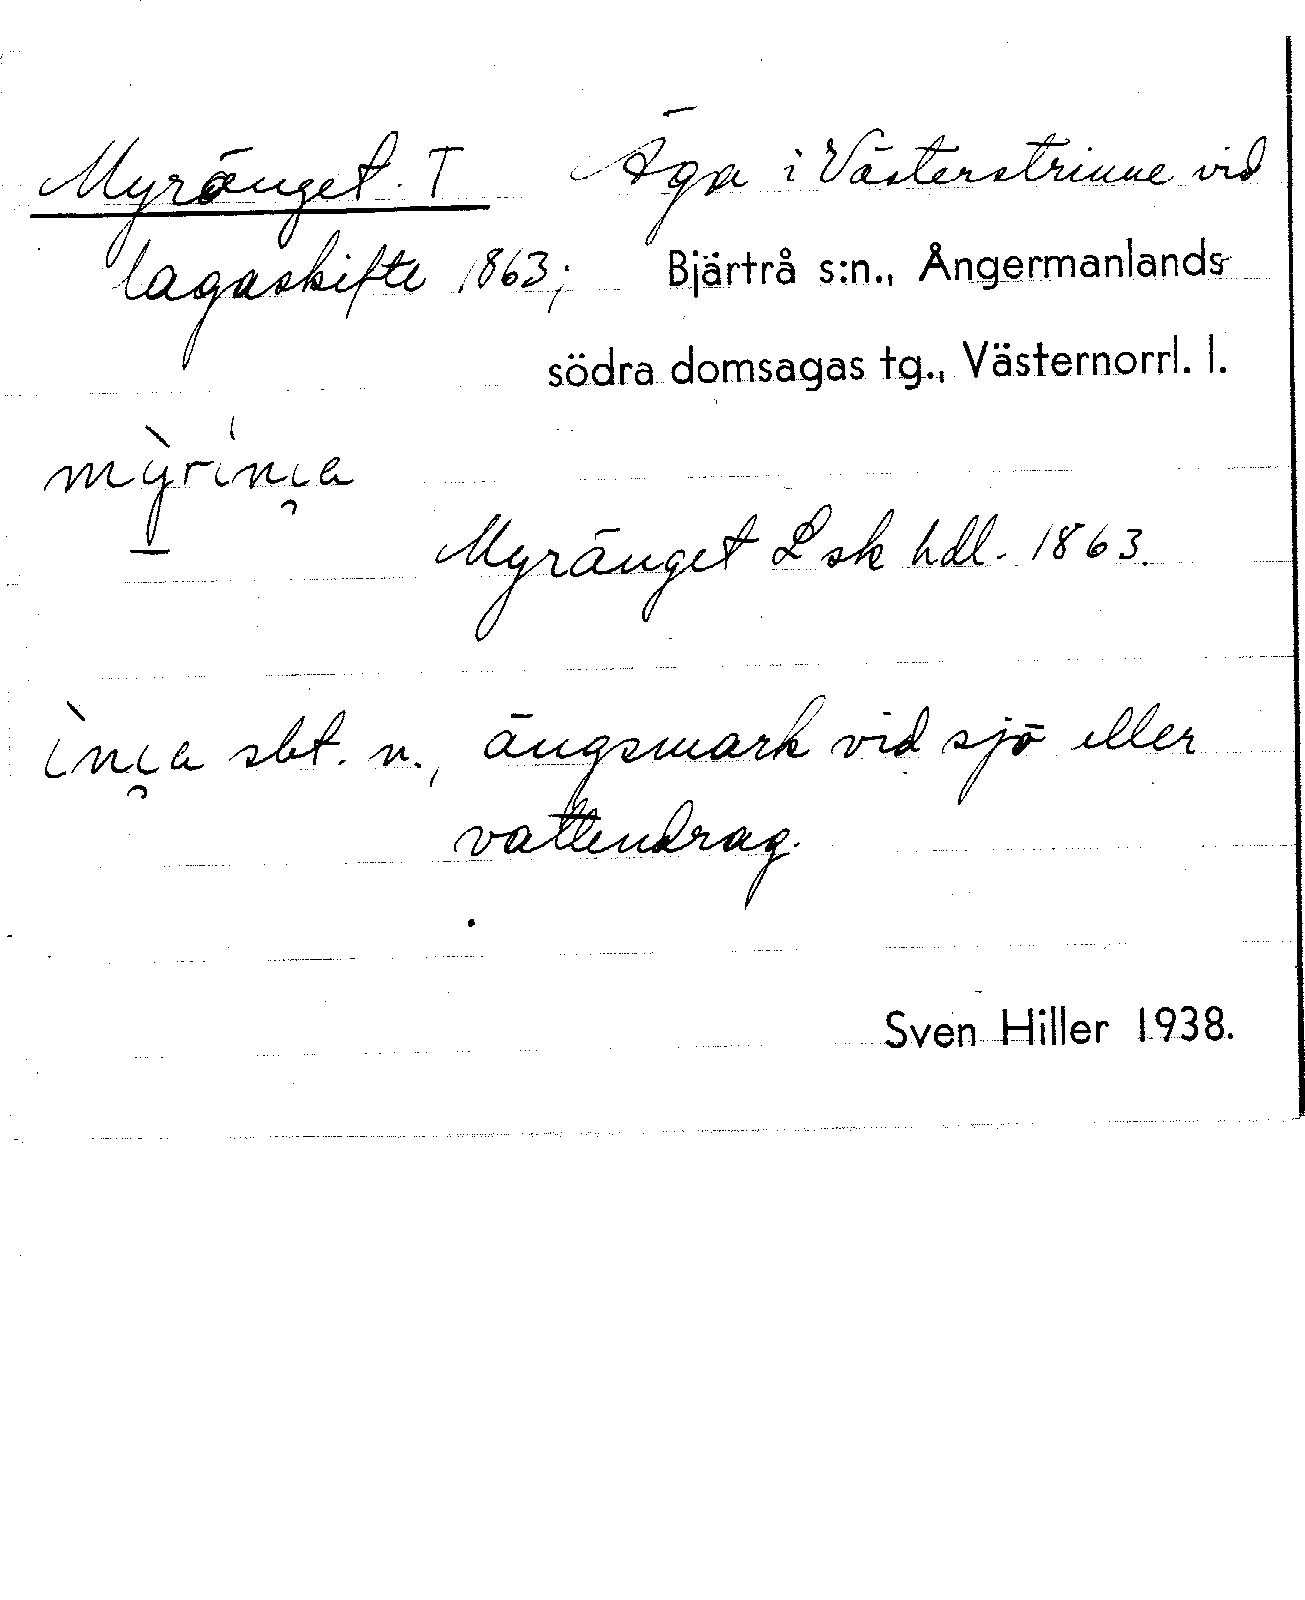 Myränget. T Äga i Västerstrinne vid
lagaskifte 1863; Bjärtrå s:n., Ångermanlands
södra domsagas tg., Västernorrl. l.
Myränget L sk hdl. 1863.
sbt. n., ängsmark vid sjö eller
vattendrag.
Sven Hiller 1938.